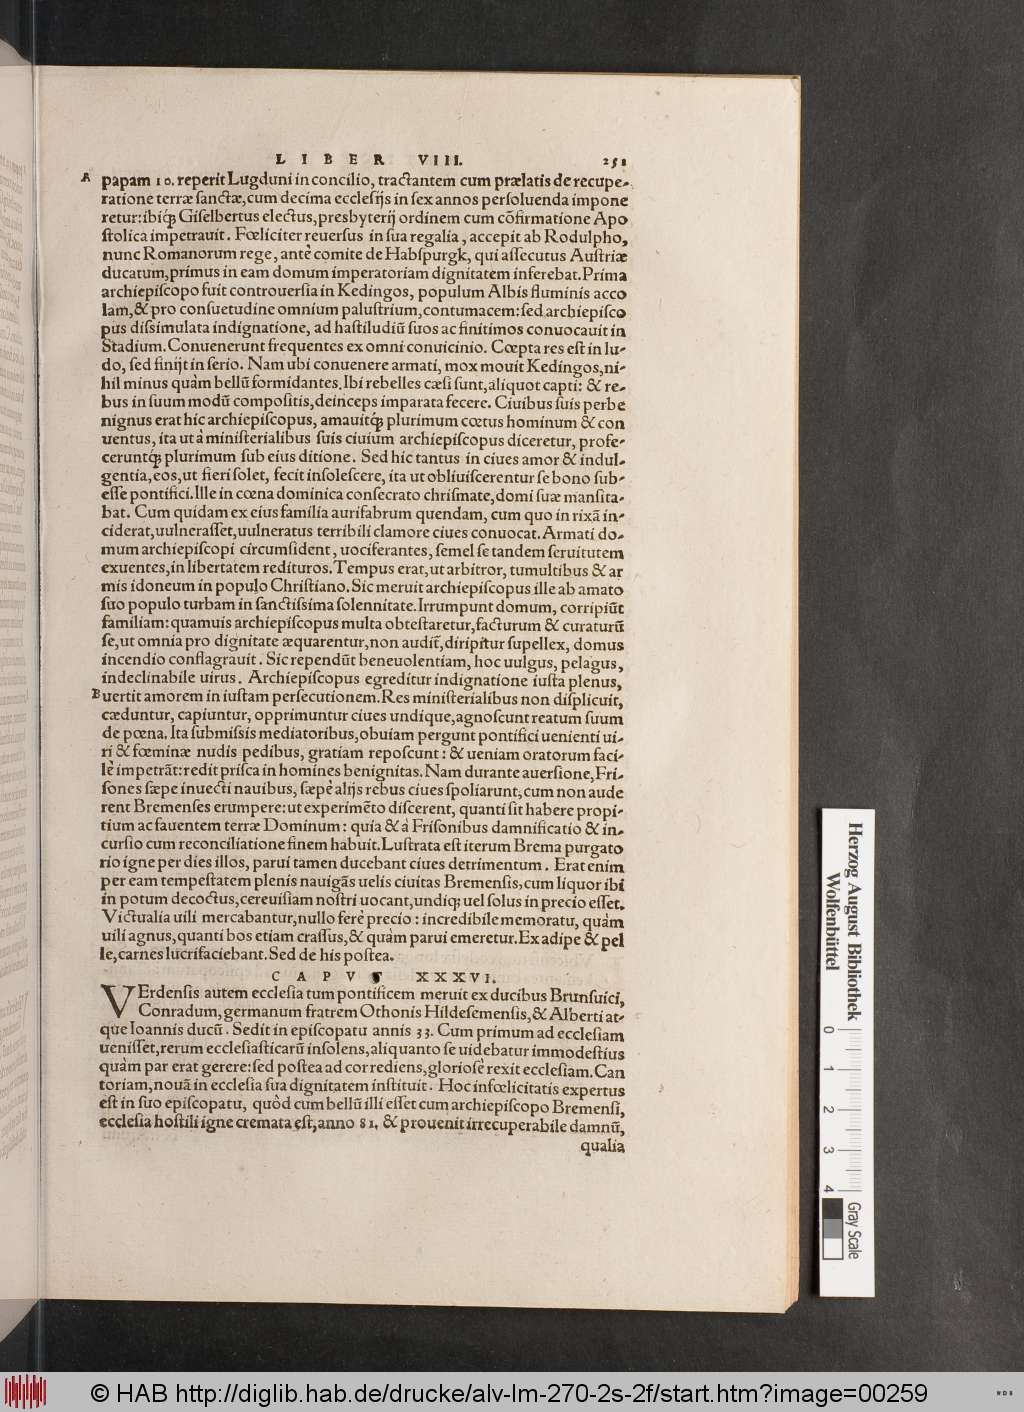 LIBER VIII. 251
A papam 10. reperit Lugduni in concilio, tractantem cum prælatis de recupe-
ratione terræ sanctæ, cum decima ecclesijs in sex annos persoluenda impone
retur: ibiq́; Giselbertus electus, presbyterij ordinem cum cõfirmatione Apo
stolica impetrauit. Fœliciter reuersus in sua regalia, accepit ab Rodulpho,
nunc Romanorum rege, antè comite de Habspurgk, qui assecutus Austriæ
ducatum, primus in eam domum imperatoriam dignitatem inferebat. Prima
archiepiscopo fuit controuersia in Kedingos, populum Albis fluminis acco
lam, & pro consuetudine omnium palustrium, contumacem: sed archiepisco
pus dissimulata indignatione, ad hastiludiũ suos ac finitimos conuocauit in
Stadium. Conuenerunt frequentes ex omni conuicinio. Cœpta res est in lu-
do, sed finijt in serio. Nam ubi conuenere armati, mox mouit Kedingos, ni-
hil minus quàm bellũ formidantes. Ibi rebelles cæsi sunt, aliquot capti: & re-
bus in suum modũ compositis, deinceps imparata fecere. Ciuibus suis perbe
nignus erat hic archiepiscopus, amauitq́; plurimum cœtus hominum & con
uentus, ita ut à ministerialibus suis ciuium archiepiscopus diceretur, profe-
ceruntq́; plurimum sub eius ditione. Sed hic tantus in ciues amor & indul-
gentia, eos, ut fieri solet, fecit insolescere, ita ut obliuiscerentur se bono sub-
esse pontifici. Ille in cœna dominica consecrato chrismate, domi suæ mansita-
bat. Cum quidam ex eius familia aurifabrum quendam, cum quo in rixã in-
ciderat, uulnerasset, uulneratus terribili clamore ciues conuocat. Armati do-
mum archiepiscopi circumsident, uociferantes, semel se tandem seruitutem
exuentes, in libertatem redituros. Tempus erat, ut arbitror, tumultibus & ar
mis idoneum in populo Christiano. Sic meruit archiepiscopus ille ab amato
suo populo turbam in sanctissima solennitate. Irrumpunt domum, corripiũt
familiam: quamuis archiepiscopus multa obtestaretur, facturum & curaturũ
se, ut omnia pro dignitate æquarentur, non audit̃, diripitur supellex, domus
incendio conflagrauit. Sic rependũt beneuolentiam, hoc uulgus, pelagus,
indeclinabile uirus. Archiepiscopus egreditur indignatione iusta plenus,
B uertit amorem in iustam persecutionem. Res ministerialibus non displicuit,
cæduntur, capiuntur, opprimuntur ciues undique, agnoscunt reatum suum
de pœna. Ita submissis mediatoribus, obuiam pergunt pontifici uenienti ui-
ri & fœminæ nudis pedibus, gratiam reposcunt: & ueniam oratorum faci-
lè impetrãt: redit prisca in homines benignitas. Nam durante auersione, Fri-
sones sæpe inuecti nauibus, sæpè alijs rebus ciues spoliarunt, cum non aude
rent Bremenses erumpere: ut experimẽto discerent, quanti sit habere propi-
tium ac fauentem terræ Dominum: quia & à Frisonibus damnificatio & in-
cursio cum reconciliatione finem habuit. Lustrata est iterum Brema purgato
rio igne per dies illos, parui tamen ducebant ciues detrimentum. Erat enim
per eam tempestatem plenis nauigãs uelis ciuitas Bremensis, cum liquor ibi
in potum decoctus, cereuisiam nostri uocant, undiq; uel solus in precio esset.
Victualia uili mercabantur, nullo ferè precio: incredibile memoratu, quàm
uili agnus, quanti bos etiam crassus, & quàm parui emeretur. Ex adipe & pel
le, carnes lucrifaciebant. Sed de his postea.
CAPVT XXXVI.
VErdensis autem ecclesia tum pontificem meruit ex ducibus Brunsuici,
Conradum, germanum fratrem Othonis Hildesemensis, & Alberti at-
que Ioannis ducũ. Sedit in episcopatu annis 33. Cum primum ad ecclesiam
uenisset, rerum ecclesiasticarũ insolens, aliquanto se uidebatur immodestius
quàm par erat gerere: sed postea ad cor rediens, gloriosè rexit ecclesiam. Can
toriam, nouã in ecclesia sua dignitatem instituit. Hoc infœlicitatis expertus
est in suo episcopatu, quòd cum bellũ illi esset cum archiepiscopo Bremensi,
ecclesia hostili igne cremata est, anno 81. & prouenit irrecuperabile damnũ,
qualia
Herzog August Bibliothek
Wolfenbüttel
0 1 2 3 4
Gray Scale
© HAB http://diglib.hab.de/drucke/alv-lm-270-2s-2f/start.htm?image=00259